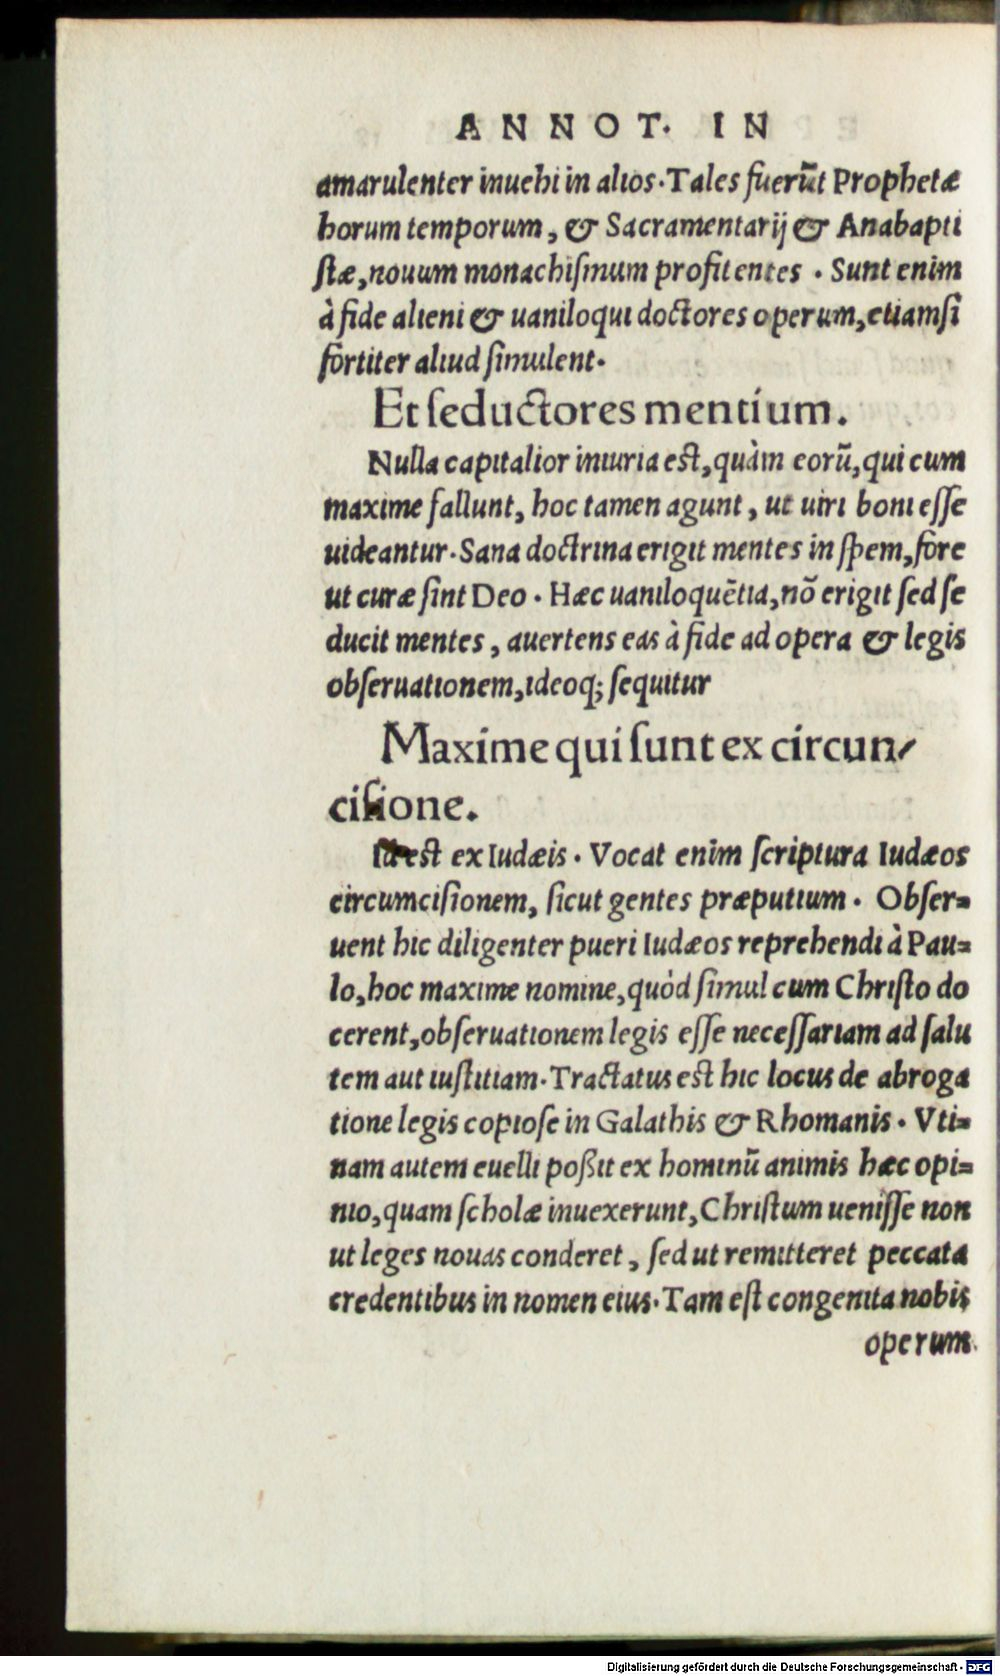 ANNOT. IN
amarulenter inuehi in alios. Tales fuerũt Prophetæ
horum temporum, & Sacramentarij & Anabapti
ſtæ, nouum monachiſmum profitentes. Sunt enim
à fide alieni & uaniloqui doctores operum, etiamſi
fortiter aliud ſimulent.
Et ſeductores mentium.
Nulla capitalior iniuria eſt, quàm eorũ, qui cum
maxime fallunt, hoc tamen agunt, ut uiri boni eſſe
uideantur. Sana doctrina erigit mentes in ſpem, fore
ut curæ ſint Deo. Hæc uaniloquẽtia, nõ erigit ſed ſe
ducit mentes, auertens eas à fide ad opera & legis
obſeruationem, ideoq; ſequitur
Maxime qui ſunt ex circun-
ciſione.
Id eſt ex Iudæis. Vocat enim ſcriptura Iudæos
circumciſionem, ſicut gentes præputium. Obſer=
uent hic diligenter pueri Iudæos reprehendi à Pau=
lo, hoc maxime nomine, quòd ſimul cum Chriſto do
cerent, obſeruationem legis eſſe neceſſariam ad ſalu
tem aut iuſtitiam. Tractatus eſt hic locus de abroga
tione legis copioſe in Galathis & Rhomanis. Vti=
nam autem euelli poßit ex hominũ animis hæc opi=
nio, quam ſcholæ inuexerunt, Chriſtum ueniſſe non
ut leges nouas conderet, ſed ut remitteret peccata
credentibus in nomen eius. Tam eſt congenita nobis
operum
Digitalisierung gefördert durch die Deutsche Forschungsgemeinschaft - DFG